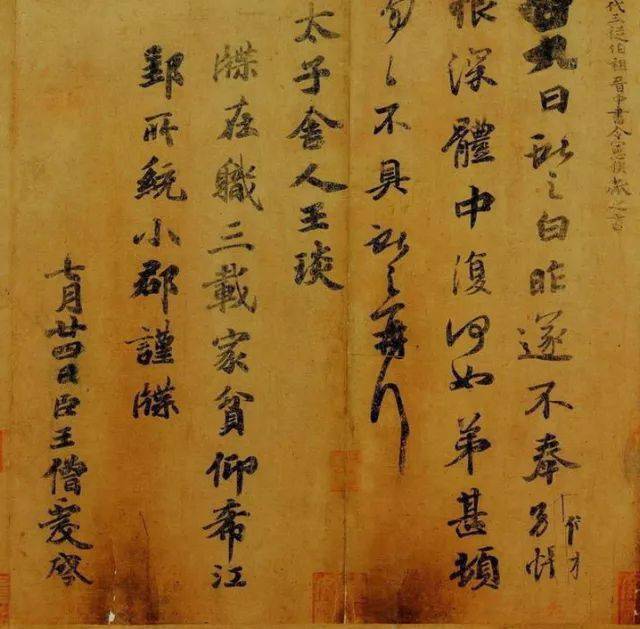 代三從伯祖晉中書令憲侯獻之書
九日獻之白昨遂不奉別悵
恨深體中復何如弟甚頓
匆匆不具獻之再拜
太子舍人王琰
牒在職三載家貧仰希江
郢所統小郡謹牒
七月廿四日臣王僧虔啓